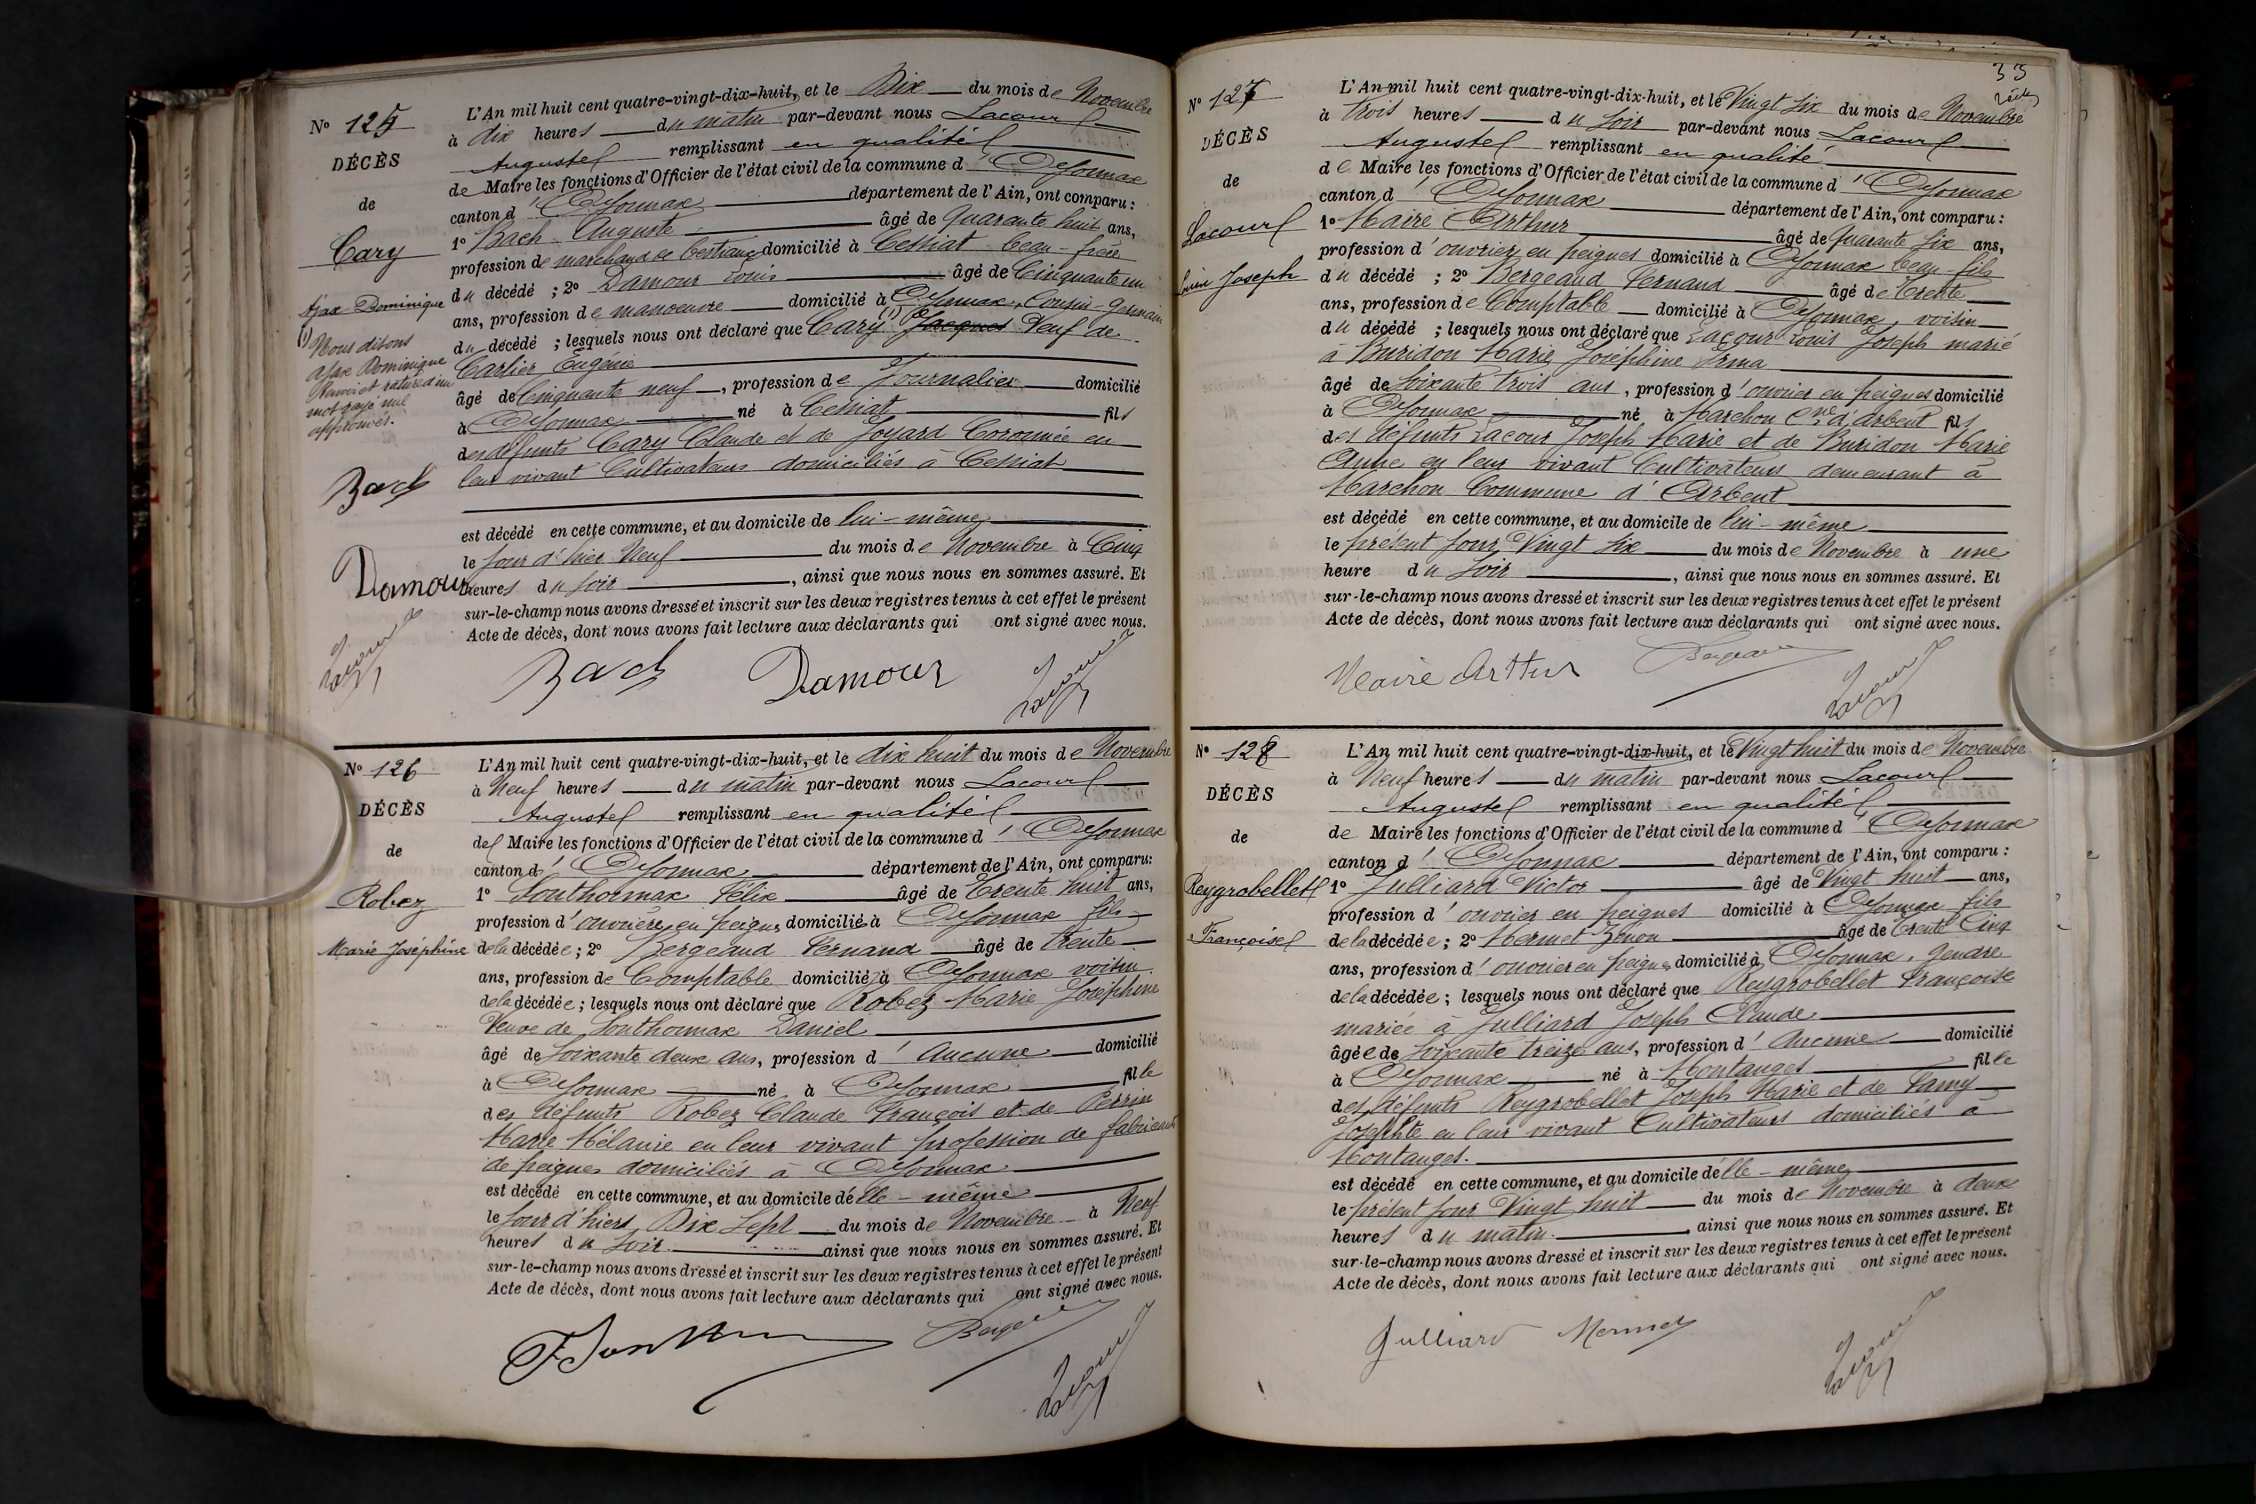 Nº 125
DÉCÈS
de
Cary
Ajax Dominique
(1) Nous disons
Ajax Dominique
Renvoi et rature d'un
mot rayé nul
approuvés.
Bach
Damour
L'An mil huit cent quatre-vingt-dix-huit, et le Dix du mois de Novembre
à dix heures du matin par-devant nous Lacour
Auguste remplissant en qualité
de Maire les fonctions d'Officier de l'état civil de la commune d'Oyonnax
canton d'Oyonnax département de l'Ain, ont comparu :
1º Bach Auguste âgé de Quarante huit ans,
profession de marchand de bestiaux domicilié à Ceissiat beau-frère
du décédé ; 2º Damour Louis âgé de Cinquante un
ans, profession de manoeuvre domicilié à Oyonnax, Cousin-germain
du décédé ; lesquels nous ont déclaré que Cary (1) Jacques Veuf de
Carlier Eugénie
âgé de Cinquante neuf, profession de Journalier domicilié
à Oyonnax né à Ceissiat fils
des défunts Cary Claude et de Joyard Coronnée en
leur vivant Cultivateurs domiciliés à Ceissiat
est décédé en cette commune, et au domicile de lui-même
le jour d'hier Neuf du mois de Novembre à Cinq
heures du soir, ainsi que nous nous en sommes assuré. Et
sur-le-champ nous avons dressé et inscrit sur les deux registres tenus à cet effet le présent
Acte de décès, dont nous avons fait lecture aux déclarants qui ont signé avec nous.
Bach Damour Lacour
Nº 126
DÉCÈS
de
Robez
Marie Joséphine
L'An mil huit cent quatre-vingt-dix-huit, et le dix huit du mois de Novembre
à Neuf heures du matin par-devant nous Lacour
Auguste remplissant en qualité
de Maire les fonctions d'Officier de l'état civil de la commune d'Oyonnax
canton d'Oyonnax département de l'Ain, ont comparu:
1º Sonthonnax Félix âgé de Trente huit ans,
profession d'ouvrière en peignes domicilié à Oyonnax fils
de la décédée ; 2º Bergeaud Fernand âgé de trente
ans, profession de Comptable domicilié à Oyonnax voisin
de la décédée ; lesquels nous ont déclaré que Robez Marie Joséphine
Veuve de Sonthonnax Daniel
âgé de Soixante deux ans, profession d'Aucune domicilié
à Oyonnax né à Oyonnax fille
des défunts Robez Claude François et de Perrin
Marie Mélanie en leur vivant profession de fabricants
de peignes domiciliés à Oyonnax
est décédé en cette commune, et au domicile d'elle-même
le jour d'hier Dix Sept du mois de Novembre à Neuf
heures du soir ainsi que nous nous en sommes assuré. Et
sur-le-champ nous avons dressé et inscrit sur les deux registres tenus à cet effet le présent
Acte de décès, dont nous avons fait lecture aux déclarants qui ont signé avec nous.
Lacour
33
Nº 127
DÉCÈS
de
Lacour
Louis Joseph
L'An mil huit cent quatre-vingt-dix-huit, et le Vingt six du mois de Novembre
à trois heures du soir par-devant nous Lacour
Auguste remplissant en qualité
de Maire les fonctions d'Officier de l'état civil de la commune d'Oyonnax
canton d'Oyonnax département de l'Ain, ont comparu :
1º Maire Arthur âgé de Quarante six ans,
profession d'ouvrier en peignes domicilié à Oyonnax beau-fils
du décédé ; 2º Bergeaud Fernand âgé de Trente
ans, profession de Comptable domicilié à Oyonnax, voisin
du décédé ; lesquels nous ont déclaré que Lacour Louis Joseph marié
à Buridon Marie Joséphine Irma
âgé de Soixante trois ans, profession d'ouvrier en peignes domicilié
à Oyonnax né à Marchon Cne d'Arbent fils
des défunts Lacour Joseph Marie et de Buridon Marie
Anne en leur vivant Cultivateurs demeurant à
Marchon Commune d'Arbent
est décédé en cette commune, et au domicile de lui-même
le présent jour Vingt six du mois de Novembre à une
heure du soir, ainsi que nous nous en sommes assuré. Et
sur-le-champ nous avons dressé et inscrit sur les deux registres tenus à cet effet le présent
Acte de décès, dont nous avons fait lecture aux déclarants qui ont signé avec nous.
Maire Arthur Bergeaud Lacour
Nº 128
DÉCÈS
de
Reygrobellet
Françoise
L'An mil huit cent quatre-vingt-dix-huit, et le Vingt huit du mois de Novembre
à Neuf heures du matin par-devant nous Lacour
Auguste remplissant en qualité
de Maire les fonctions d'Officier de l'état civil de la commune d'Oyonnax
canton d'Oyonnax département de l'Ain, ont comparu :
1º Julliard Victor âgé de Vingt huit ans,
profession d'ouvrier en peignes domicilié à Oyonnax fils
de la décédée ; 2º Mermet Zénon âgé de Trente Cinq
ans, profession d'ouvrier en peignes domicilié à Oyonnax, gendre
de la décédée ; lesquels nous ont déclaré que Reygrobellet Françoise
mariée à Julliard Joseph Claude
âgée de soixante treize ans, profession d'Aucune domicilié
à Oyonnax né à Montanges fille
des défunts Reygrobellet Joseph Marie et de Famy
Josephte en leur vivant Cultivateurs domiciliés à
Montanges.
est décédé en cette commune, et au domicile d'elle-même
le présent jour Vingt huit du mois de Novembre à deux
heures du matin ainsi que nous nous en sommes assuré. Et
sur-le-champ nous avons dressé et inscrit sur les deux registres tenus à cet effet le présent
Acte de décès, dont nous avons fait lecture aux déclarants qui ont signé avec nous.
Julliard Mermet Lacour